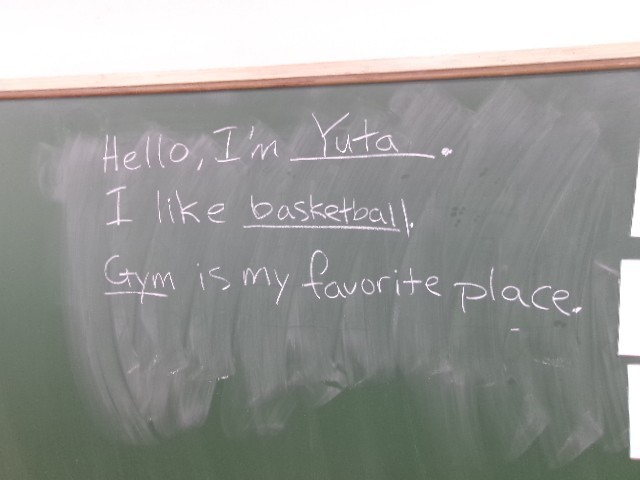 Hello, I'm Yuta.
I like basketball.
Gym is my favorite place.